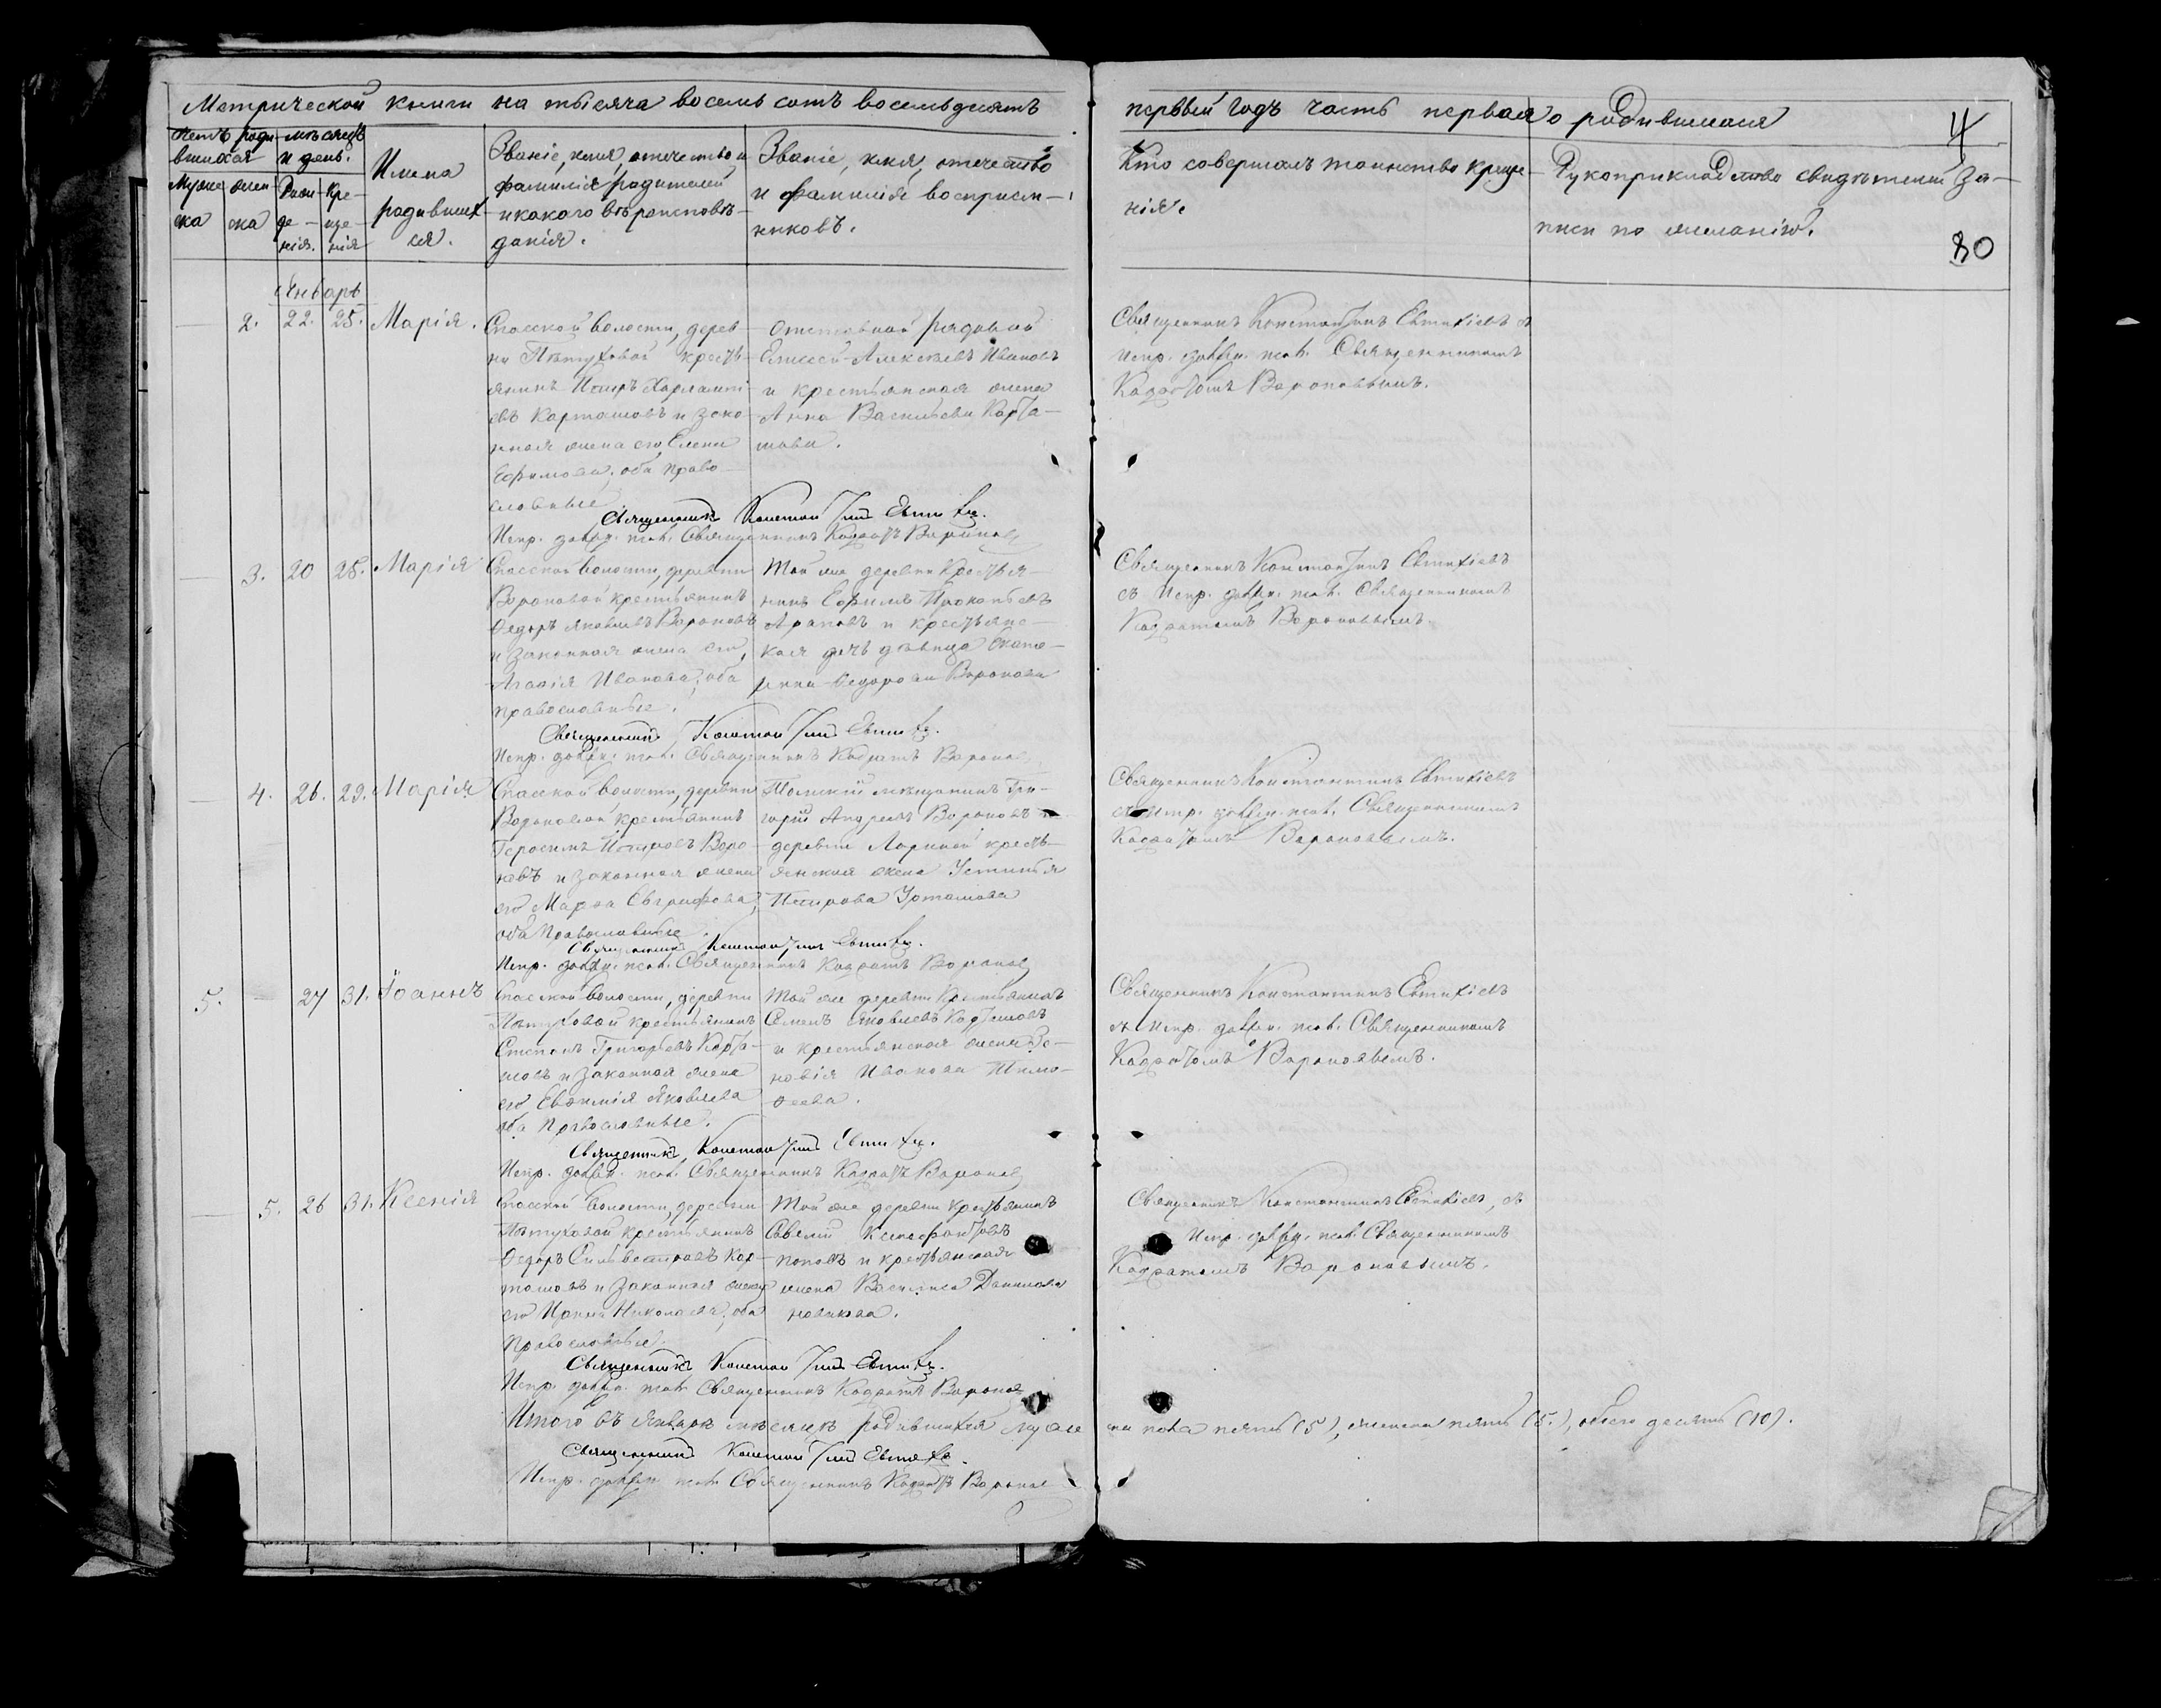 Метрической книги на тысяча восемь сотъ восемьдесятъ
первый годъ часть первая о родившихся
4
80
Счетъ роди-
вшихся
Муже
ска
жен
ска
мѣсяцъ
и день.
Рож-
де-
нія.
Кре-
ще-
нія
Имена
родивших
ся.
Званіе, имя, отечество и
фамилія родителей
и какого вѣроисповѣ-
данія.
Званіе, имя, отечество
и фамилія воспріем-
никовъ.
Кто совершалъ таинство креще-
нія.
Рукоприкладство свидѣтелей за-
писи по желанію.
Январь
2. 22. 25. Марія.
Спасской волости, дерев-
ни Пѣтуховой кресть-
янинъ Петръ Харлампі-
евъ Карташовъ и зако-
нная жена его Елена
Ефимова, оба право-
славные
Отставной рядовой
Елисей Алексѣевъ Ивановъ
и крестьянская жена
Анна Васильева Карта-
шова.
Священникъ Константинъ Евтихіевъ съ
испр. должн. псал. Священникомъ
Кодратомъ Вороновымъ.
Священникъ Константинъ Евтихіевъ.
Испр. должн. псал. Священникъ Кодратъ Вороновъ
3. 20 25. Марія
Спасской волости, деревни
Вороновой крестьянинъ
Ѳедоръ Яковлевъ Вороновъ
и законная жена его,
Агафія Иванова, оба
православные.
Той же деревни крестья-
нинъ Ефимъ Прокопьевъ
Араповъ и крестьянс-
кая дочь дѣвица Екате-
рина Ѳедорова Воронова
Священникъ Константинъ Евтихіевъ
съ Испр. должн. псал. Священникомъ
Кодратомъ Вороновымъ.
Священникъ Константинъ Евтихіевъ.
Испр. должн. псал. Священникъ Кодратъ Вороновъ
4. 26. 29. Марія
Спасской волости, деревни
Вороновой крестьянинъ
Герасимъ Петровъ Воро-
новъ и законная жена
его Марѳа Евграфова,
оба Православные.
Томскій мѣщанинъ Гри-
горій Андреевъ Вороновъ и
деревни Лариной кресть-
янская жена Устинья
Петрова Уртамова
Священникъ Константинъ Евтихіевъ
съ Испр. должн. псал. Священникомъ
Кодратомъ Вороновымъ.
Священникъ Константинъ Евтихіевъ.
Испр. должн. псал. Священникъ Кодратъ Вороновъ
5. 27 31. Іоаннъ
Спасской волости, деревни
Пѣтуховой крестьянинъ
Степанъ Григорьевъ Карта-
шовъ и законная жена
его Евѳимія Яковлева
оба Православные.
Той же деревни Крестьянинъ
Семенъ Яковлевъ Карташовъ
и крестьянская жена Зе-
новія Иванова Тимо-
ѳеева.
Священникъ Константинъ Евтихіевъ
съ Испр. должн. псал. Священникомъ
Кодратомъ Вороновымъ.
Священникъ Константинъ Евтихіевъ.
Испр. должн. псал. Священникъ Кодратъ Вороновъ
5. 26 31. Ксенія
Спасской волости, деревни
Пѣтуховой крестьянинъ
Ѳедоръ Сильвестровъ Кар-
ташовъ и законная жена
его Ирина Николаева, оба
Православные.
Той же деревни крестьянинъ
Савелій Ксенофонтовъ
Поповъ и крестьянская
жена Василиса Данилова
Новикова.
Священникъ Константинъ Евтихіевъ, съ
Испр. должн. псал. Священникомъ
Кодратомъ Вороновымъ.
Священникъ Константинъ Евтихіевъ.
Испр. должн. псал. Священникъ Кодратъ Вороновъ
Итого въ Январѣ мѣсяцѣ родившихся муже ска пола пять (5), женска пять (5.), обоего десять (10).
Священникъ Константинъ Евтихіевъ.
Испр. должн. псал. Священникъ Кодратъ Вороновъ